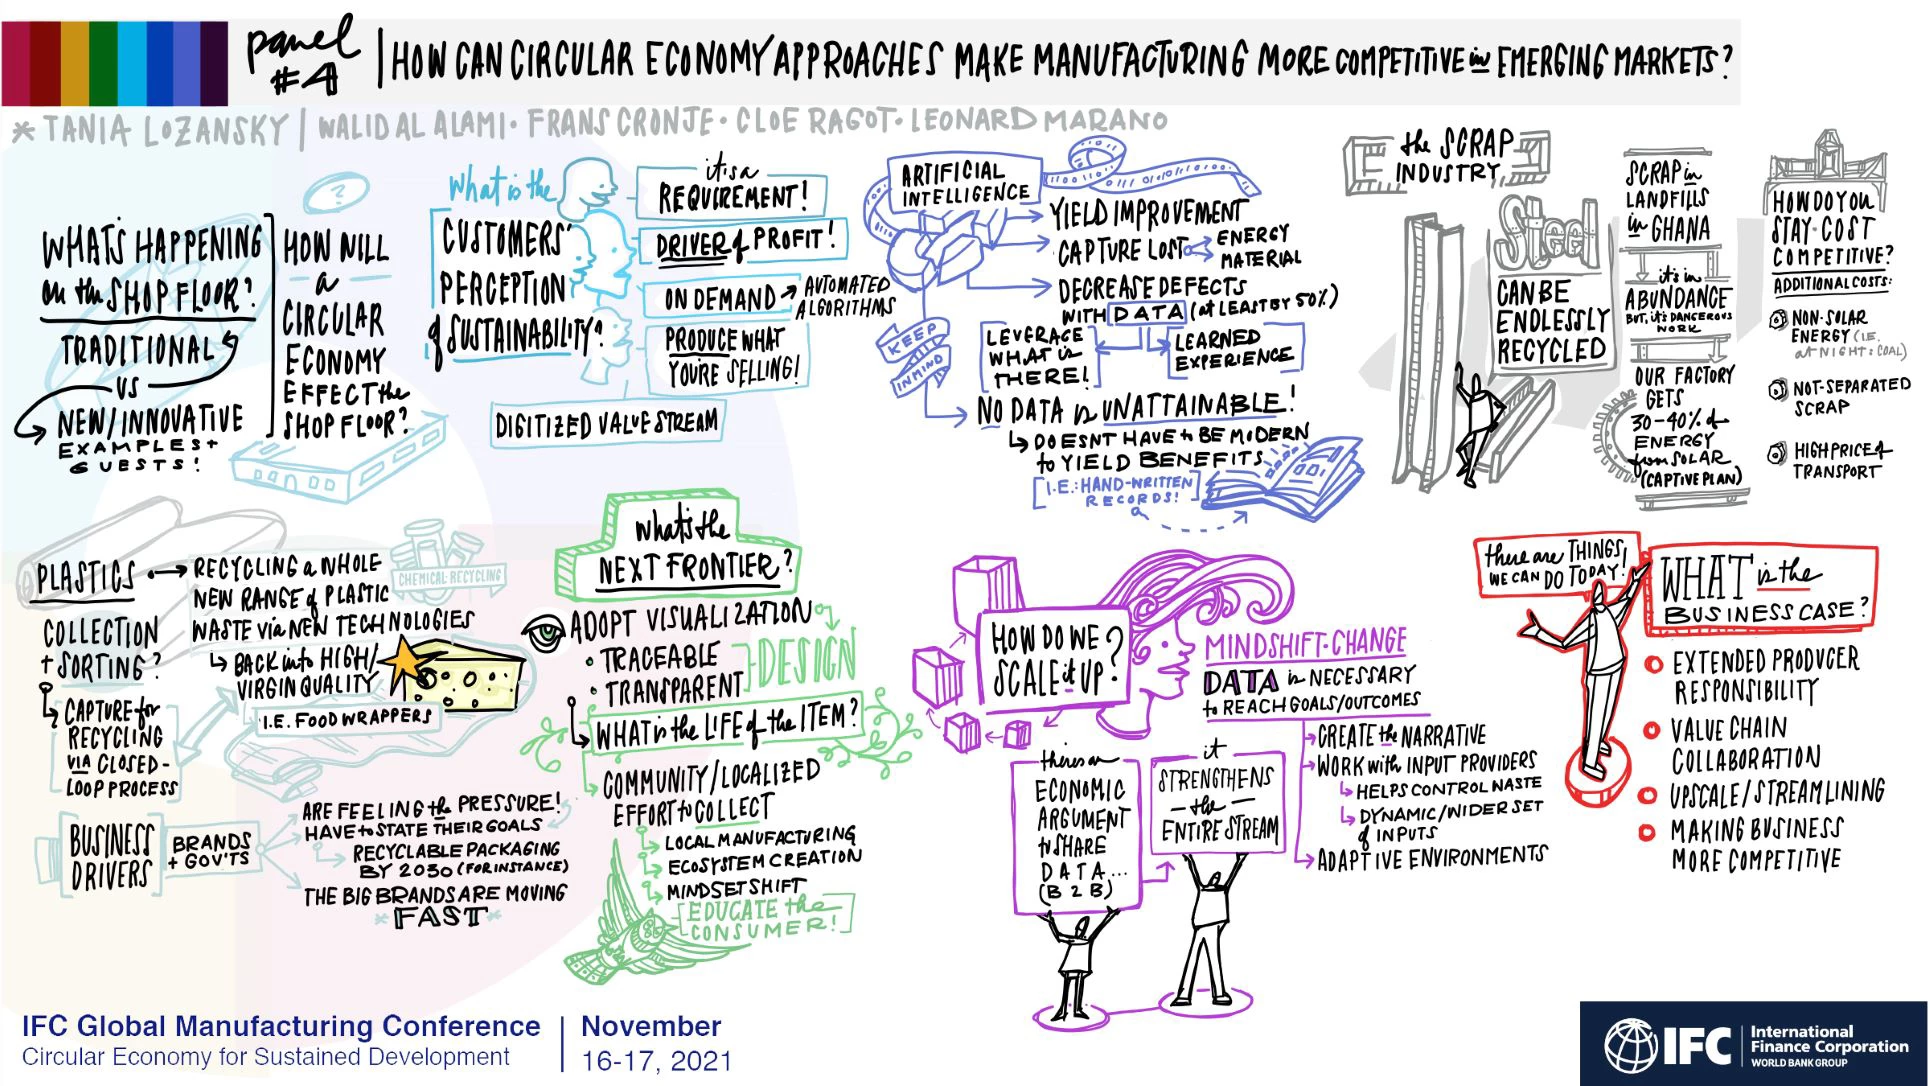 panel #4 | HOW CAN CIRCULAR ECONOMY APPROACHES MAKE MANUFACTURING MORE COMPETITIVE in EMERGING MARKETS?
* TANIA LOZANSKY | WALID AL ALAMI · FRANS CRONJE · CLOE RAGOT · LEONARD MARANO
WHAT'S HAPPENING
on the SHOP FLOOR?
TRADITIONAL
VS
NEW/INNOVATIVE
EXAMPLES +
GUESTS!
?
HOW WILL
a
CIRCULAR
ECONOMY
EFFECT the
SHOP FLOOR?
What is the
CUSTOMERS'
PERCEPTION
of SUSTAINABILITY?
it's a
REQUIREMENT!
DRIVER of PROFIT!
ON DEMAND → AUTOMATED
ALGORITHMS
PRODUCE WHAT
YOU'RE SELLING!
DIGITIZED VALUE STREAM
ARTIFICIAL
INTELLIGENCE
YIELD IMPROVEMENT
CAPTURE LOST
ENERGY
MATERIAL
DECREASE DEFECTS
WITH DATA (at LEAST BY 50%)
LEVERAGE
WHAT is
THERE!
LEARNED
EXPERIENCE
KEEP
IN MIND
NO DATA is UNATTAINABLE!
DOESN'T HAVE to BE MODERN
to YIELD BENEFITS
[I.E.: HAND-WRITTEN
RECORDS!]
the SCRAP
INDUSTRY
Steel
CAN BE
ENDLESSLY
RECYCLED
SCRAP in
LANDFILLS
in GHANA
it's in
ABUNDANCE
BUT, it's DANGEROUS
WORK
OUR FACTORY
GETS
30-40% of
ENERGY
from SOLAR
(CAPTIVE PLAN)
HOW DO YOU
STAY COST
COMPETITIVE?
ADDITIONAL COSTS:
NON-SOLAR
ENERGY (I.E.
at NIGHT: COAL)
NOT-SEPARATED
SCRAP
HIGH PRICE of
TRANSPORT
PLASTICS
RECYCLING a WHOLE
NEW RANGE of PLASTIC
WASTE via NEW TECHNOLOGIES
CHEMICAL RECYCLING
BACK into HIGH/
VIRGIN QUALITY
I.E. FOOD WRAPPERS
COLLECTION
+ SORTING?
CAPTURE for
RECYCLING
VIA CLOSED-
LOOP PROCESS
BUSINESS
DRIVERS
BRANDS
+ GOV'TS
ARE FEELING the PRESSURE!
HAVE to STATE THEIR GOALS
RECYCLABLE PACKAGING
BY 2030 (FOR INSTANCE)
THE BIG BRANDS ARE MOVING
*FAST*
What's the
NEXT FRONTIER?
ADOPT VISUALIZATION
• TRACEABLE
• TRANSPARENT
DESIGN
WHAT is the LIFE of the ITEM?
COMMUNITY/LOCALIZED
EFFORT to COLLECT
LOCAL MANUFACTURING
ECOSYSTEM CREATION
MINDSET SHIFT
EDUCATE the
CONSUMER!
HOW DO WE
SCALE it UP?
MINDSHIFT·CHANGE
DATA is NECESSARY
to REACH GOALS/OUTCOMES
CREATE the NARRATIVE
WORK with INPUT PROVIDERS
HELPS CONTROL WASTE
DYNAMIC/WIDER SET
of INPUTS
ADAPTIVE ENVIRONMENTS
there's an
ECONOMIC
ARGUMENT
to SHARE
DATA...
(B2B)
it
STRENGTHENS
- the -
ENTIRE STREAM
there are THINGS
WE CAN DO TODAY!
WHAT is the
BUSINESS CASE?
EXTENDED PRODUCER
RESPONSIBILITY
VALUE CHAIN
COLLABORATION
UPSCALE/STREAMLINING
MAKING BUSINESS
MORE COMPETITIVE
IFC Global Manufacturing Conference
Circular Economy for Sustained Development
November
16-17, 2021
IFC
International
Finance Corporation
WORLD BANK GROUP